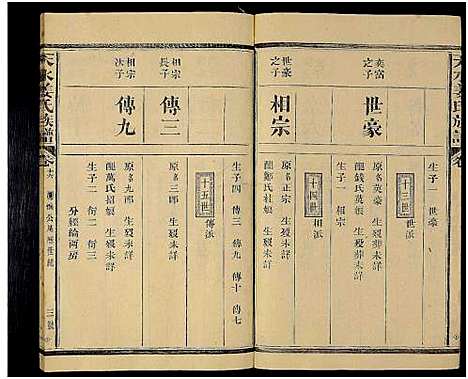 天水姜氏族譜
卷
生子一 世豪
十三世
世派
奕富
之子
世豪
原名英豪
配錢氏英娘 生歿葬未詳
生子一 相宗
十四世
相派
世豪
之子
相宗
原名正宗
配鄭氏社娘 生歿葬未詳
生子四 傳三 傳九 傳十 傳七
十五世
傳派
相宗
長子
傳三
原名三郎 生歿未詳
相宗
次子
傳九
原名九郎 生歿未詳
配萬氏招娘 生歿未詳
生子二 衍二 衍三
分經綸兩房
天水姜氏族譜
卷十六
三